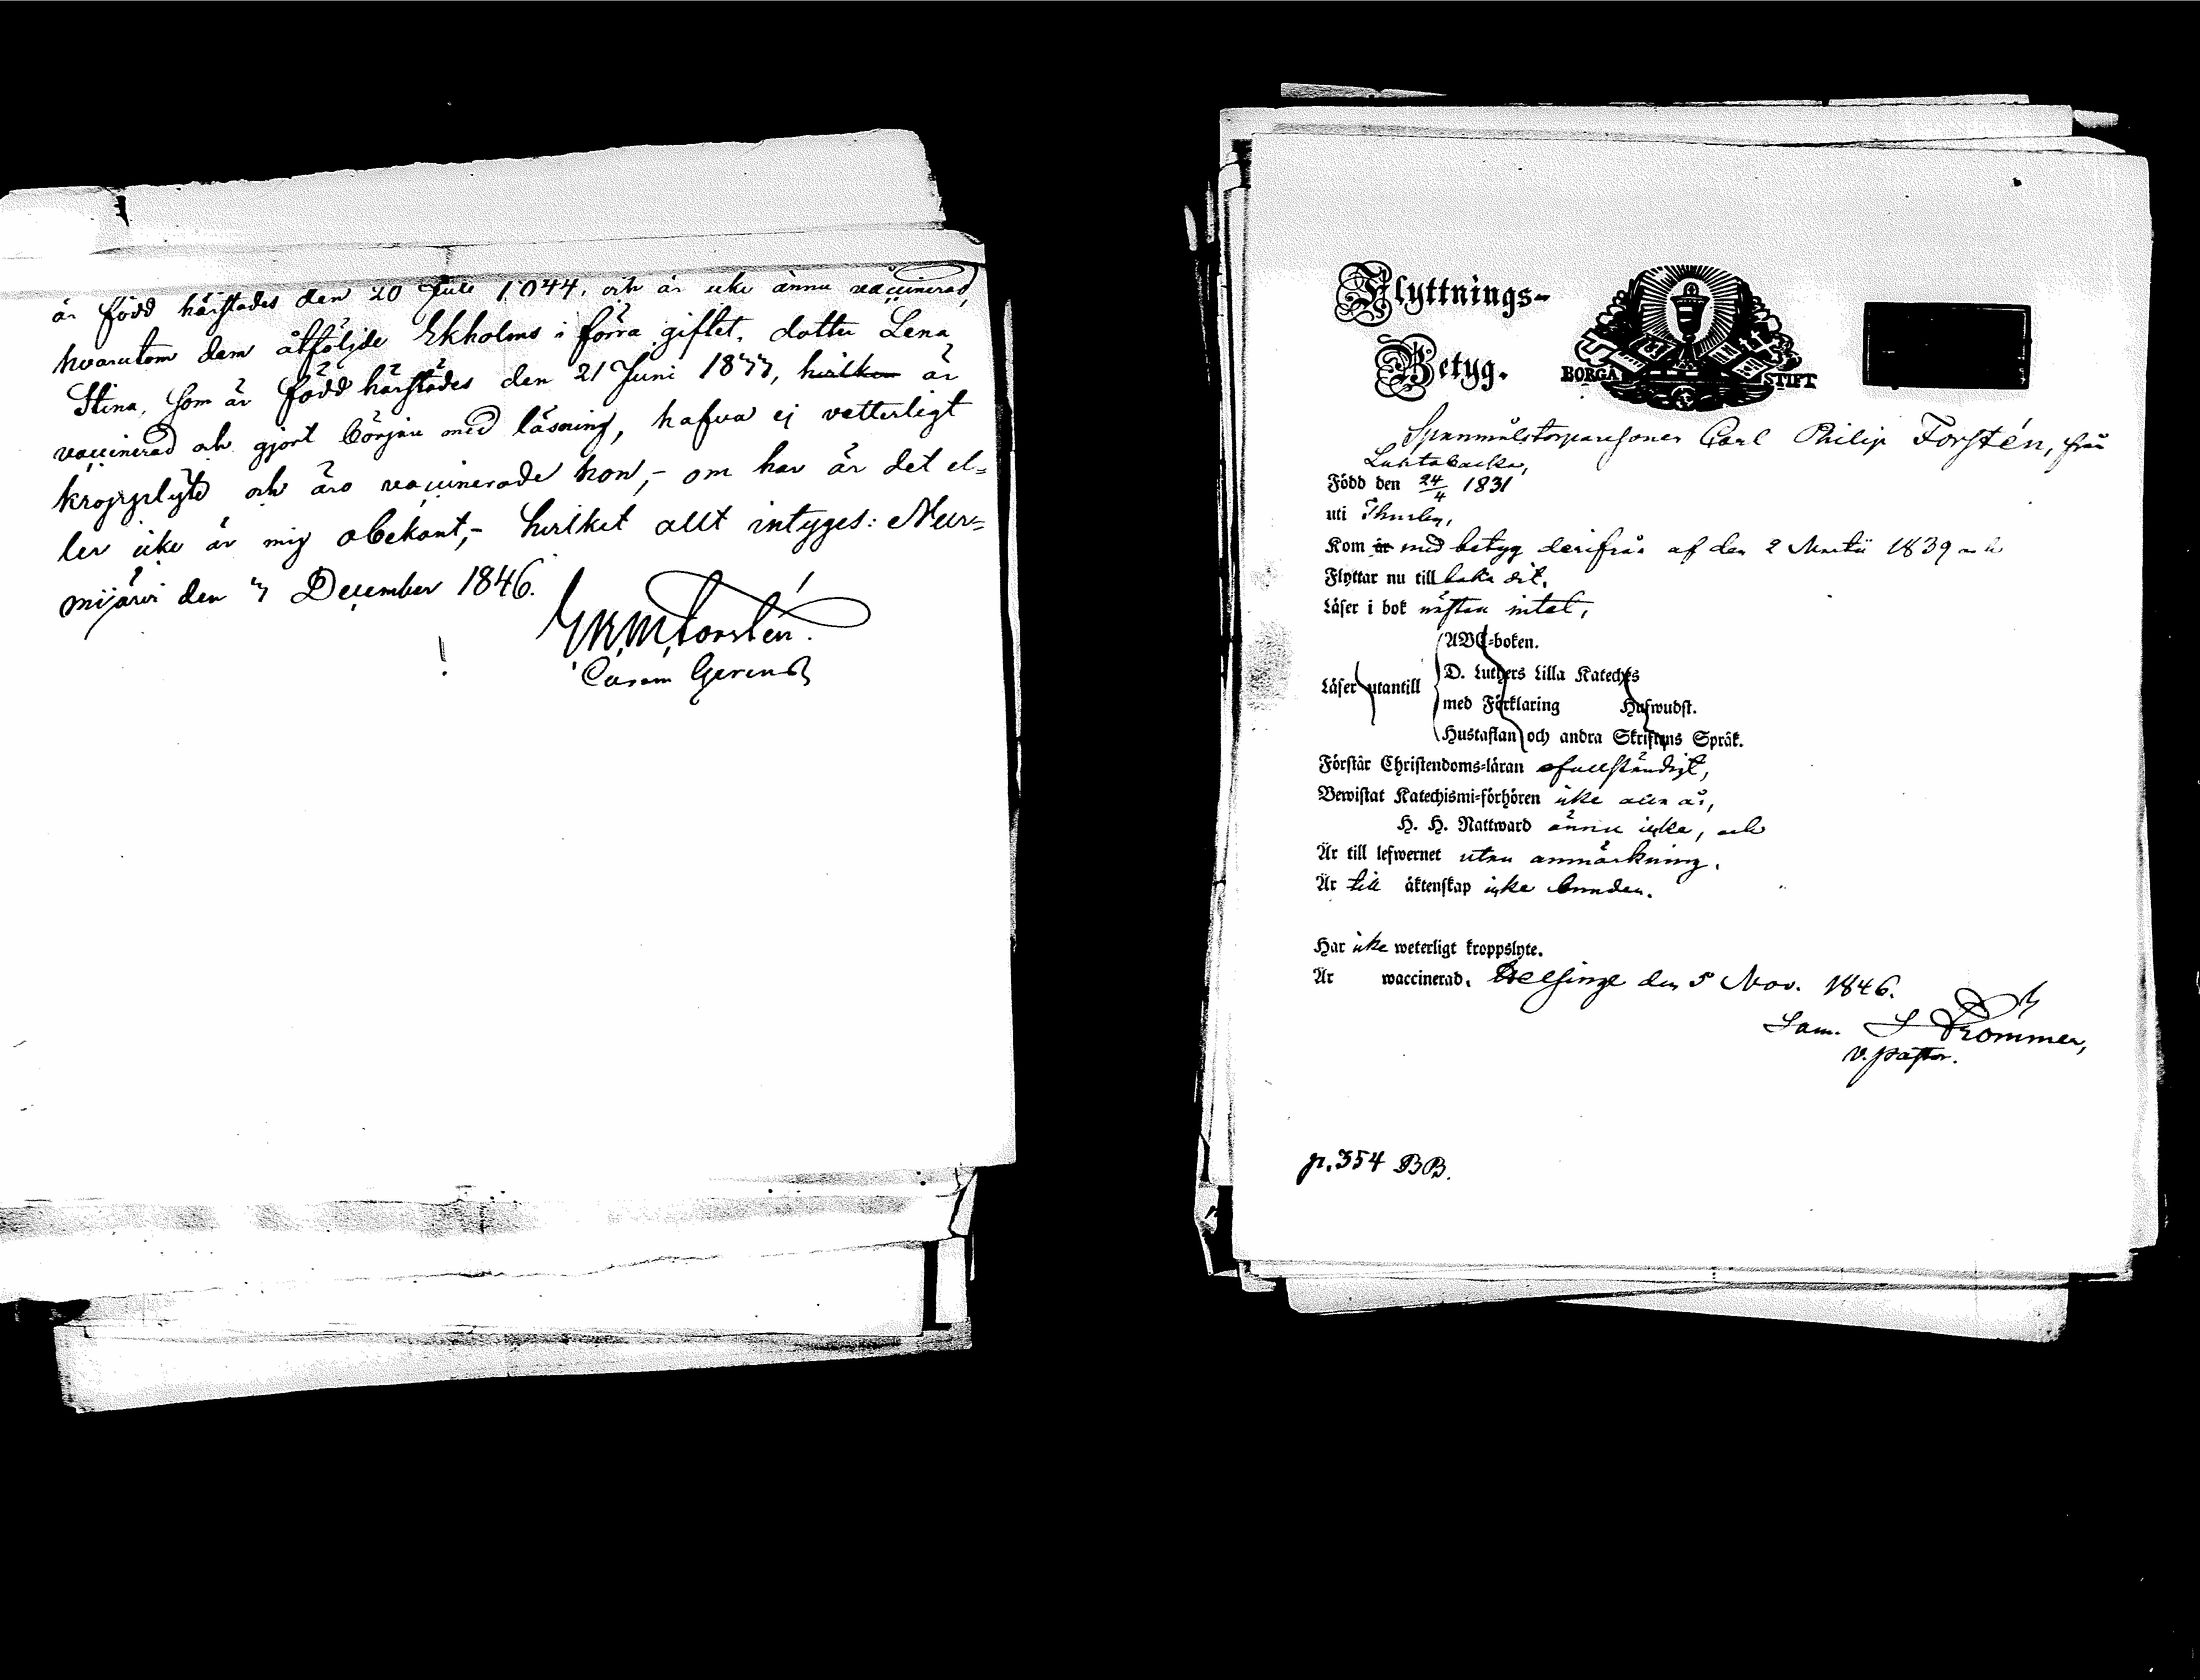 är född härstädes den 20 Juli 1844, och är icke ännu vaccinerad,
hvarutom dem åtföljde Ekholms i förra giftet, dotter Lena
Stina, som är född härstädes den 21 Juni 1837, hvilken är
vaccinerad och gjort början med läsning, hafva ej vetterligt
kroppslyte och äro vaccinerade hon, - om han är det el=
ler icke är mig obekant, - hvilket allt intyges: Nur=
mijärvi den 7 December 1846.
Forstén.
Curam Gerens
Flyttnings-
Betyg.
BORGÅ STIFT
Spanmålstorparesonen Carl Philip Forstén, från
Luhtabacka,
Född den 24/4 1831
uti Thusby,
Kom är med betyg derifrån af den 2 Martii 1839 och
Flyttar nu tillbaka dit.
Läser i bok nästan intet,
ABC-boken.
D. Luthers Lilla Kateches
Läser utantill
med Förklaring Hufwudst.
Hustaflan och andra Skriftens Språk.
Förstår Christendoms-läran ofullständigt,
Bewistat Katechismi-förhören icke alla år,
H. H. Nattward ännu icke, och
Är till lefwernet utan anmärkning.
Är till äktenskap icke bunden.
Har icke weterligt kroppslyte.
Är waccinerad. Helsinge den 5 Nov. 1846.
Sam. S Krommer,
v. pastor.
p. 354 BB.